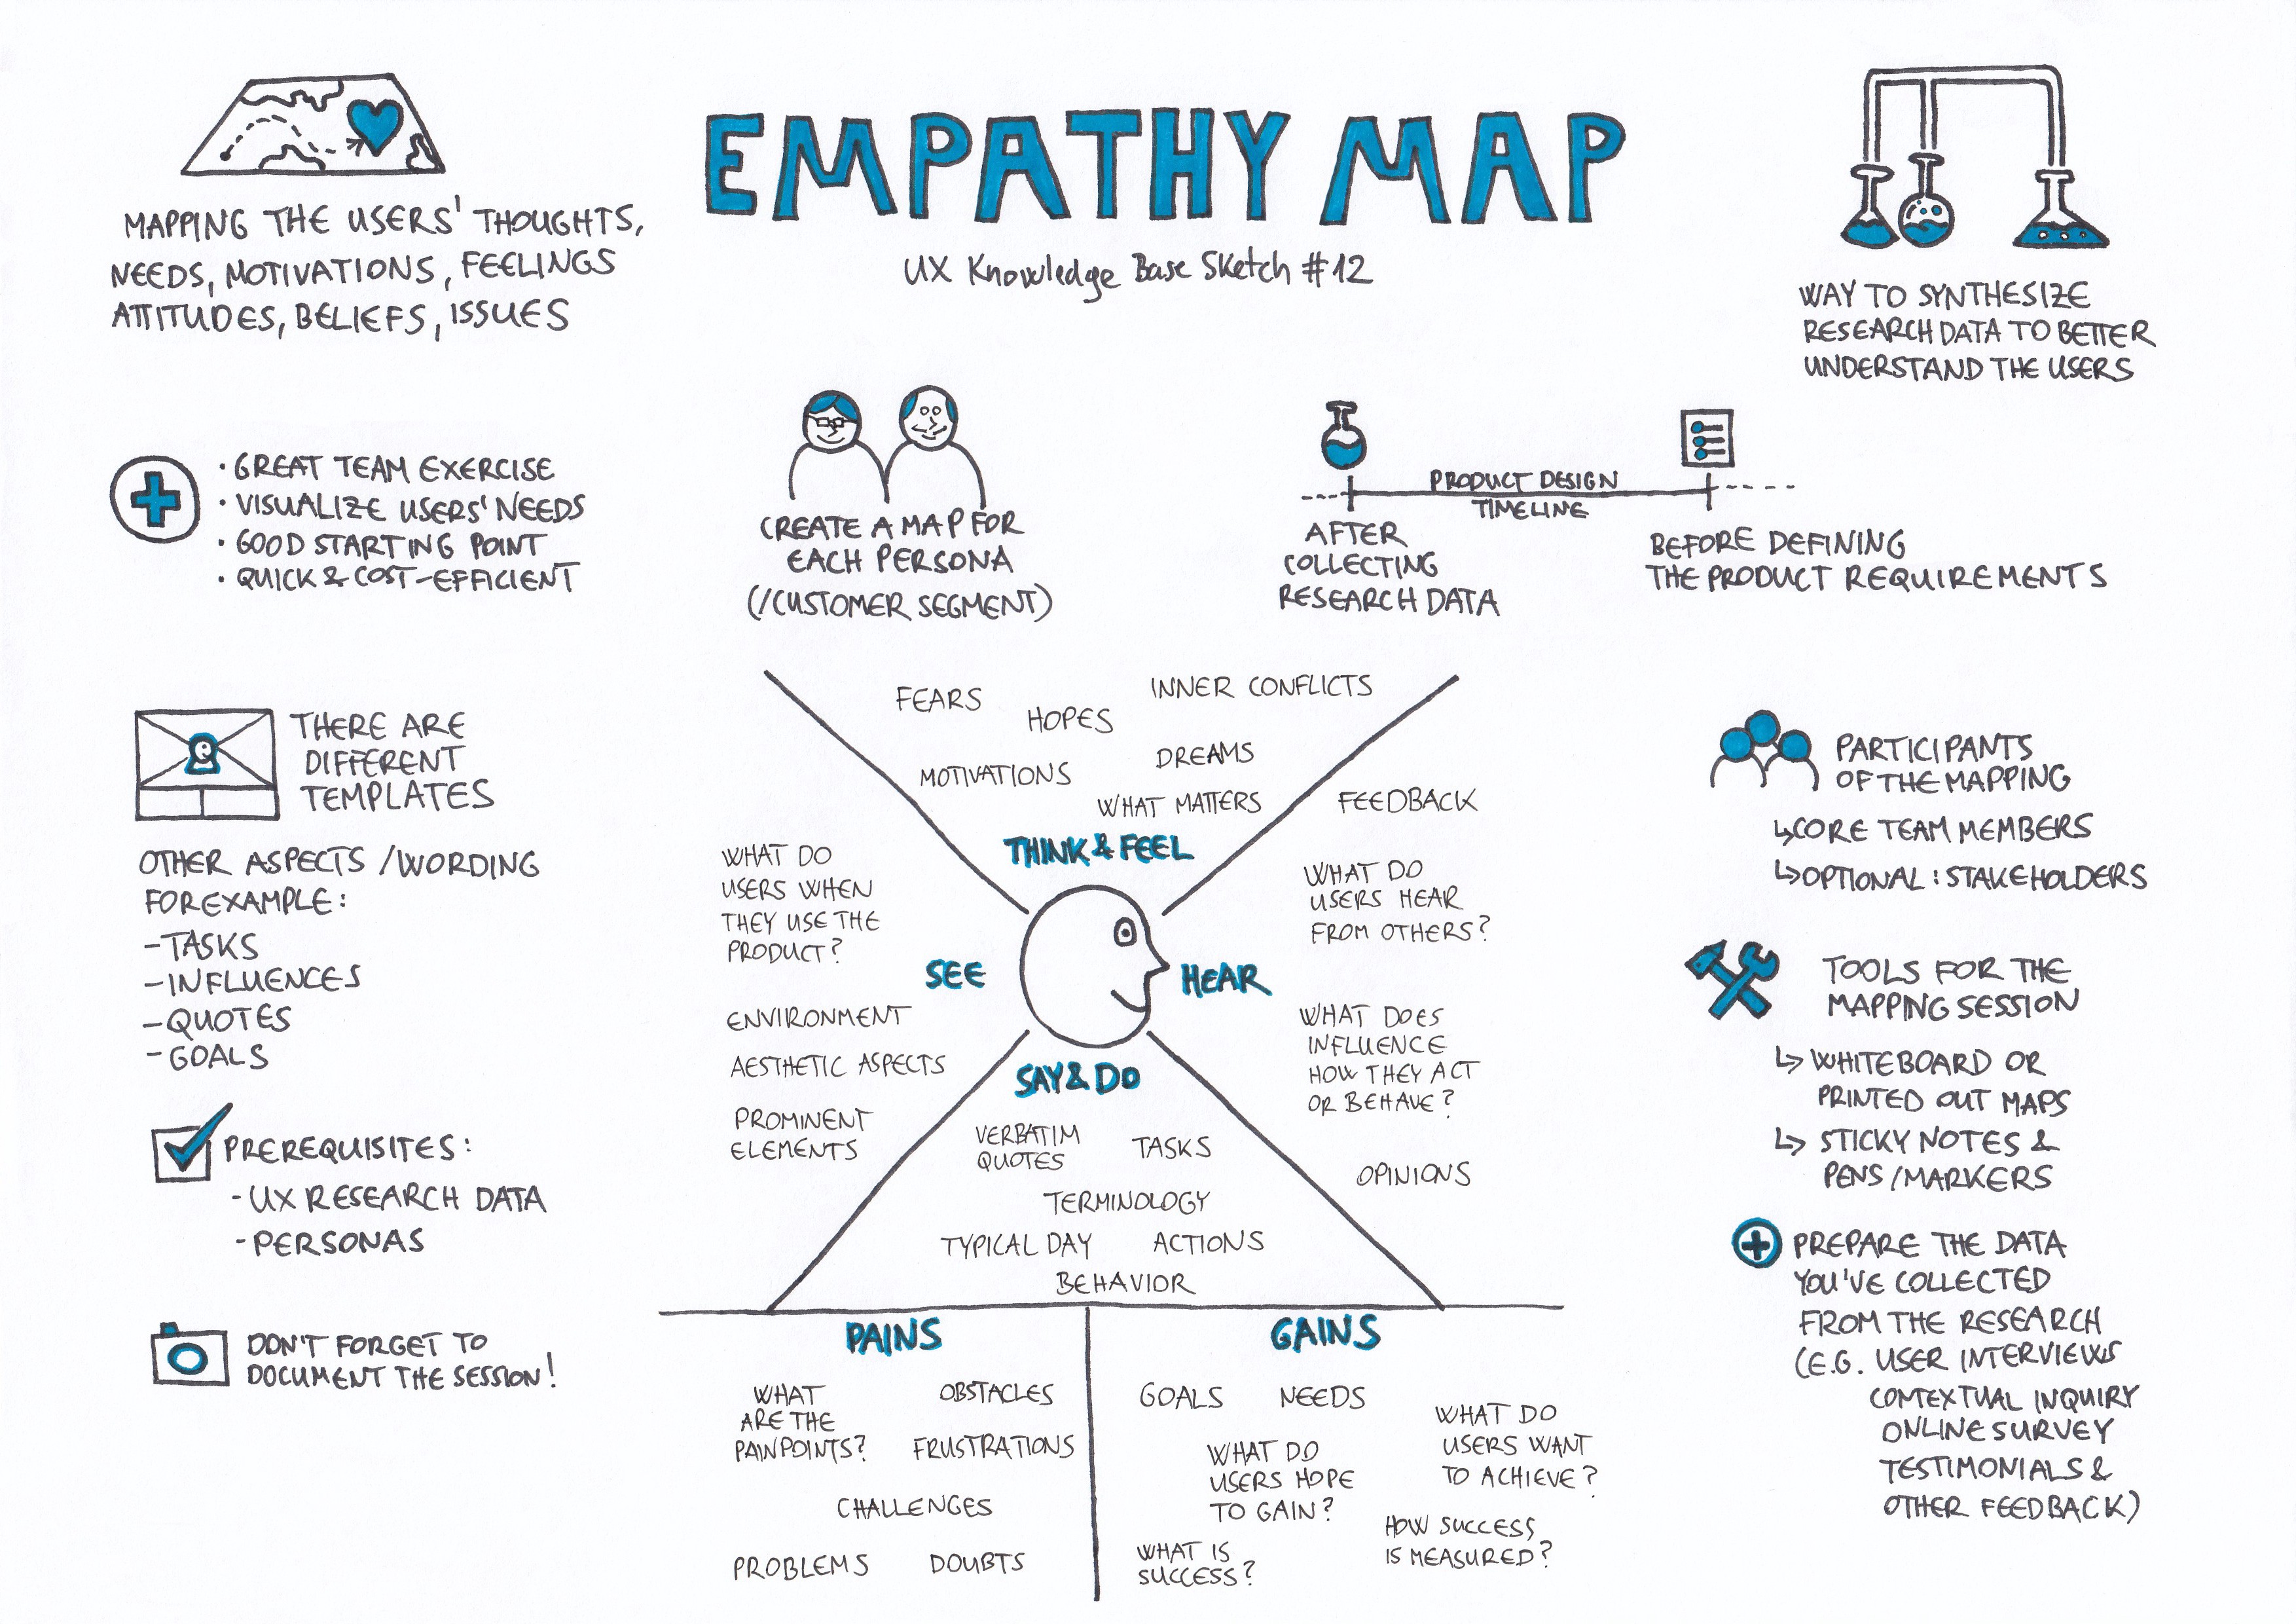 EMPATHY MAP
UX Knowledge Base Sketch #12
MAPPING THE USERS' THOUGHTS,
NEEDS, MOTIVATIONS, FEELINGS
ATTITUDES, BELIEFS, ISSUES
WAY TO SYNTHESIZE
RESEARCH DATA TO BETTER
UNDERSTAND THE USERS
• GREAT TEAM EXERCISE
• VISUALIZE USERS' NEEDS
• GOOD STARTING POINT
• QUICK & COST-EFFICIENT
CREATE A MAP FOR
EACH PERSONA
(/CUSTOMER SEGMENT)
PRODUCT DESIGN
TIMELINE
AFTER
COLLECTING
RESEARCH DATA
BEFORE DEFINING
THE PRODUCT REQUIREMENTS
THERE ARE
DIFFERENT
TEMPLATES
OTHER ASPECTS /WORDING
FOR EXAMPLE:
- TASKS
- INFLUENCES
- QUOTES
- GOALS
PREREQUISITES:
- UX RESEARCH DATA
- PERSONAS
DON'T FORGET TO
DOCUMENT THE SESSION!
FEARS
HOPES
INNER CONFLICTS
MOTIVATIONS
DREAMS
WHAT MATTERS
THINK & FEEL
WHAT DO
USERS WHEN
THEY USE THE
PRODUCT?
SEE
ENVIRONMENT
AESTHETIC ASPECTS
PROMINENT
ELEMENTS
FEEDBACK
WHAT DO
USERS HEAR
FROM OTHERS?
HEAR
WHAT DOES
INFLUENCE
HOW THEY ACT
OR BEHAVE?
OPINIONS
SAY & DO
VERBATIM
QUOTES
TASKS
TERMINOLOGY
TYPICAL DAY
ACTIONS
BEHAVIOR
PAINS
WHAT
ARE THE
PAINPOINTS?
OBSTACLES
FRUSTRATIONS
CHALLENGES
PROBLEMS
DOUBTS
GAINS
GOALS
NEEDS
WHAT DO
USERS HOPE
TO GAIN?
WHAT DO
USERS WANT
TO ACHIEVE?
WHAT IS
SUCCESS?
HOW SUCCESS
IS MEASURED?
PARTICIPANTS
OF THE MAPPING
↳ CORE TEAM MEMBERS
↳ OPTIONAL: STAKEHOLDERS
TOOLS FOR THE
MAPPING SESSION
↳ WHITEBOARD OR
PRINTED OUT MAPS
↳ STICKY NOTES &
PENS/MARKERS
PREPARE THE DATA
YOU'VE COLLECTED
FROM THE RESEARCH
(E.G. USER INTERVIEWS
CONTEXTUAL INQUIRY
ONLINE SURVEY
TESTIMONIALS &
OTHER FEEDBACK)